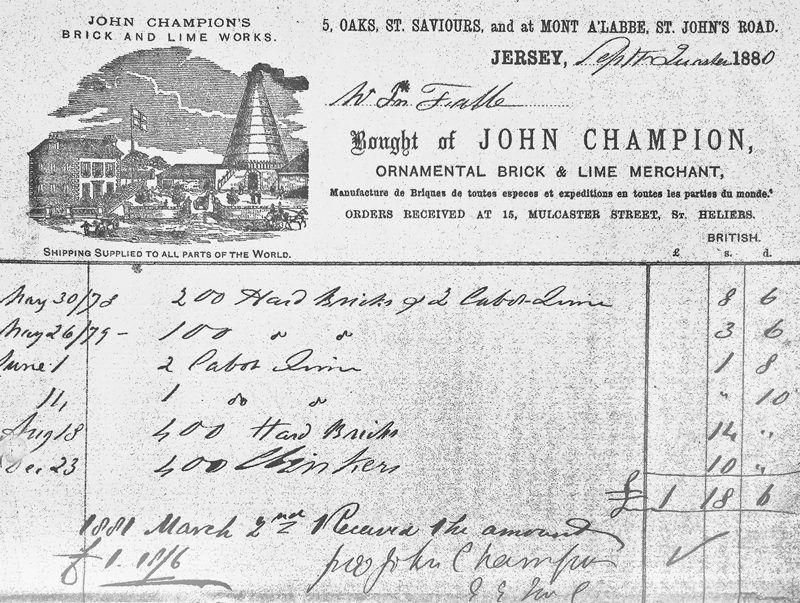 JOHN CHAMPION'S
BRICK AND LIME WORKS.
SHIPPING SUPPLIED TO ALL PARTS OF THE WORLD.
5, OAKS, ST. SAVIOURS, and at MONT A'LABBE, ST. JOHN'S ROAD.
JERSEY, Sept Quarter 1880
Bought of JOHN CHAMPION,
ORNAMENTAL BRICK & LIME MERCHANT,
Manufacture de Briques de toutes especes et expeditions en toutes les parties du monde.
ORDERS RECEIVED AT 15, MULCASTER STREET, ST. HELIERS.
BRITISH.
£ s. d.
May 30/78 200 Hard Bricks & 2 Cabot Lime 8 6
May 26/79 - 100 do do 3 6
June 1 2 Cabot Lime 1 8
11, 1 do do " 10
Aug 18 400 Hard Bricks 14 "
Dec 23 400 Clinkers 10 "
£ 1 18 6
1881 March 2nd Received the amount
£ 1. 18/6 pro John Champion